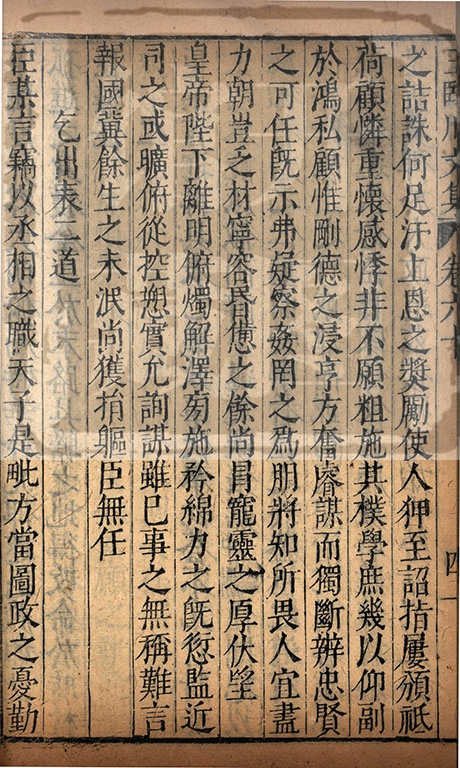 王臨川文集 卷六十 四
之詰誅何足汙上恩之獎勵使人狎至詔指屢頒祗
荷顧憐重懷感悸非不願粗施其樸學庶幾以仰副
於鴻私顧惟剛德之浸亨方奮睿謀而獨斷辨忠賢
之可任旣示弗疑察姦罔之爲朋將知所畏人宜盡
力朝豈乏材寧容昬憊之餘尚冒寵靈之厚伏望
皇帝陛下離明俯燭解澤旁施矜綿力之旣愆監近
司之或曠俯從控愬實允詢謀雖已事之無稱難言
報國冀餘生之未泯尚獲捐軀臣無任
乞出表二道
臣某言竊以丞相之職天子是毗方當圖政之憂勤